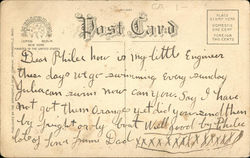 Post Card
PLACE STAMP HERE
DOMESTIC ONE CENT
FOREIGN TWO CENTS
Dear Philee how is my little Engineer
these days we go swimming every sunday
Julia can swim now can you. Say I have
not get them oranges yet did you send them
by freight or by boat Well good by Philee
lots of love from Dad XXXXXXXXXX